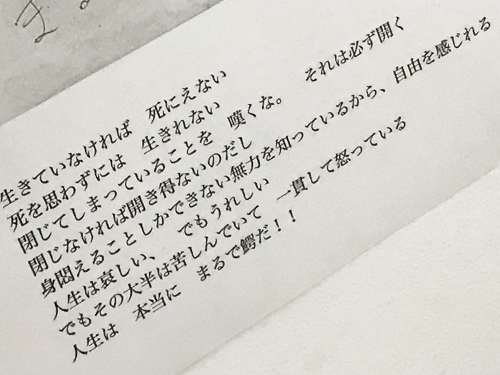 生きていなければ　死にえない
死を思わずには　生きれない
閉じてしまっていることを　嘆くな。　それは必ず開く
閉じなければ開き得ないのだし
身悶えることしかできない無力を知っているから、自由を感じれる
人生は哀しい、　でもうれしい
でもその大半は苦しんでいて　一貫して怒っている
人生は　本当に　まるで鰐だ！！